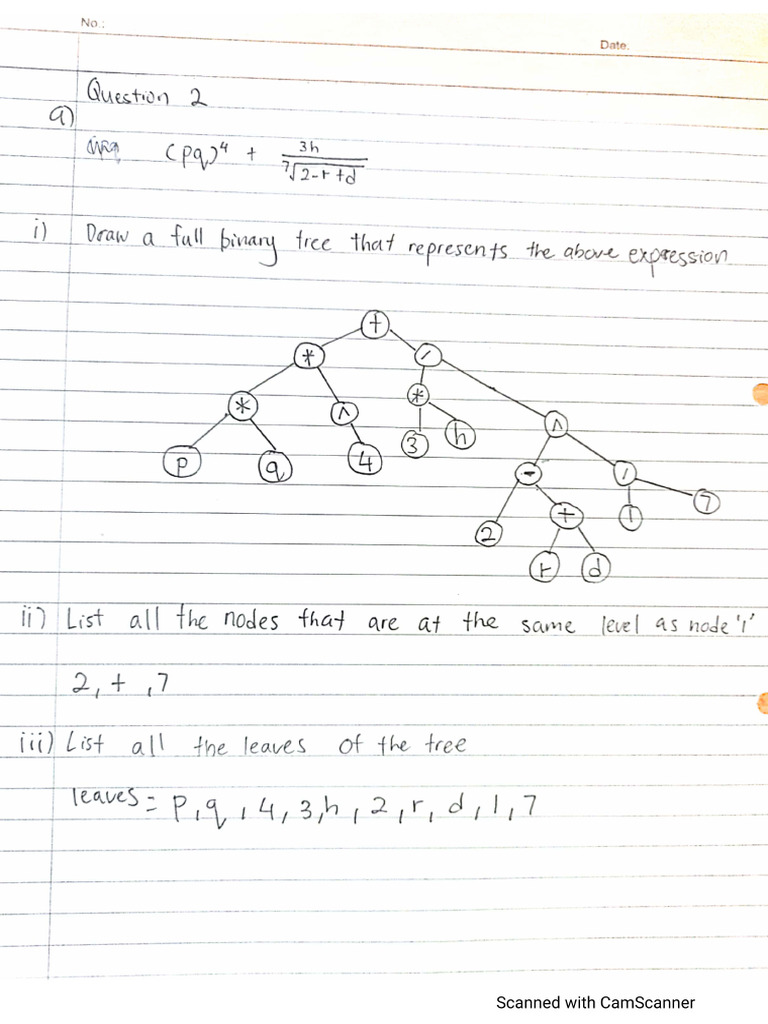 No.:
Date.
Question 2
a)
(pq)⁴ + 3h / ⁷√2-r+d
i) Draw a full binary tree that represents the above expression
+
* /
* ^ * ^
p q 4 3 h - /
2 + 1 7
r d
ii) List all the nodes that are at the same level as node '1'
2, + , 7
iii) List all the leaves of the tree
leaves = p, q, 4, 3, h, 2, r, d, 1, 7
Scanned with CamScanner